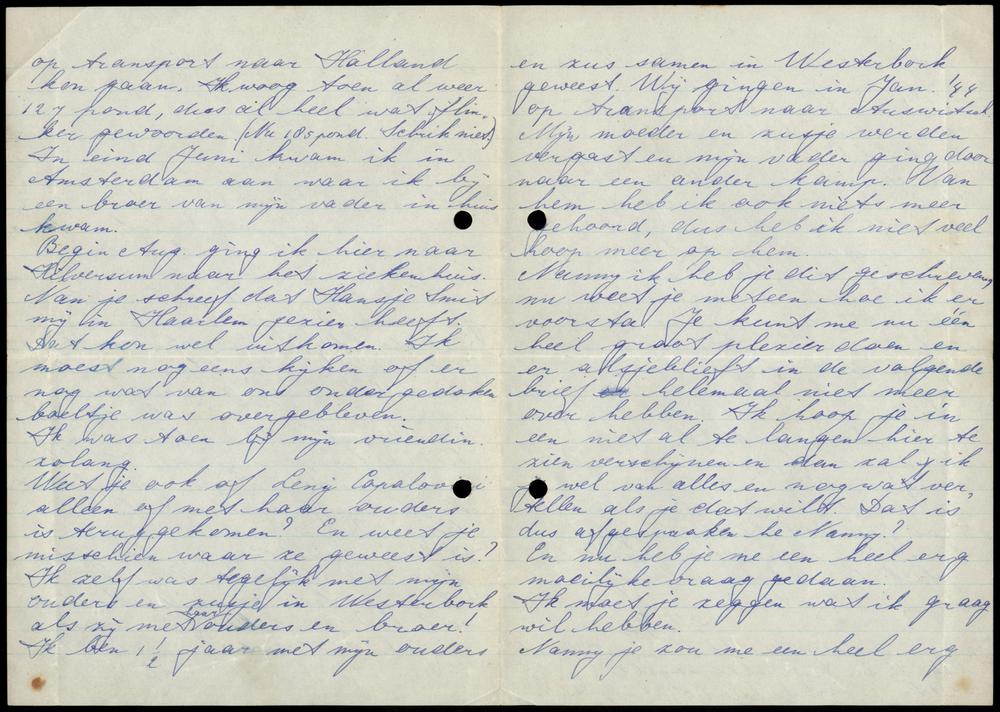 op transport naar Holland
kon gaan. Ik woog toen al weer
127 pond, dus al heel wat flin-
ker geworden (Nu 185 pond. Schrik niet)
In eind Juni kwam ik in
Amsterdam aan waar ik bij
een broer van mijn vader in huis
kwam.
Begin Aug. ging ik hier naar
Hilversum naar het ziekenhuis.
Nan je schreef dat Hansje Smit
mij in Haarlem gezien heeft.
Dat kon wel uitkomen. Ik
moest nog eens kijken of er
nog wat van ons ondergedoken
boeltje was overgebleven.
Ik was toen bij mijn vriendin
zolang.
Weet je ook of Leny
alleen of met haar ouders
is teruggekomen? En weet je
misschien waar ze geweest is?
Ik zelf was tegelijk met mijn
ouders en zusje in Westerbork
als zij met haar ouders en broer!
Ik ben 1½ jaar met mijn ouders
en zus samen in Westerbork
geweest. Wij gingen in Jan. '44
op transport naar
Mijn moeder en zusje werden
vergast en mijn vader ging door
naar een ander kamp. Van
hem heb ik ook niets meer
gehoord, dus heb ik niet veel
hoop meer op hem.
Nanny ik heb je dit geschreven
nu weet je meteen hoe ik er
voorsta. Je kunt me nu één
heel groot plezier doen en
er alsjeblieft in de volgende
brief helemaal niet meer
over hebben. Ik hoop je in
een niet al te langen hier te
zien verschijnen en dan zal ik
je wel van alles en nog wat ver-
tellen als je dat wilt. Dat is
dus afgesproken he Nanny?
En nu heb je me een heel erg
moeilijke vraag gedaan.
Ik moet je zeggen wat ik graag
wil hebben.
Nanny je zou me een heel erg